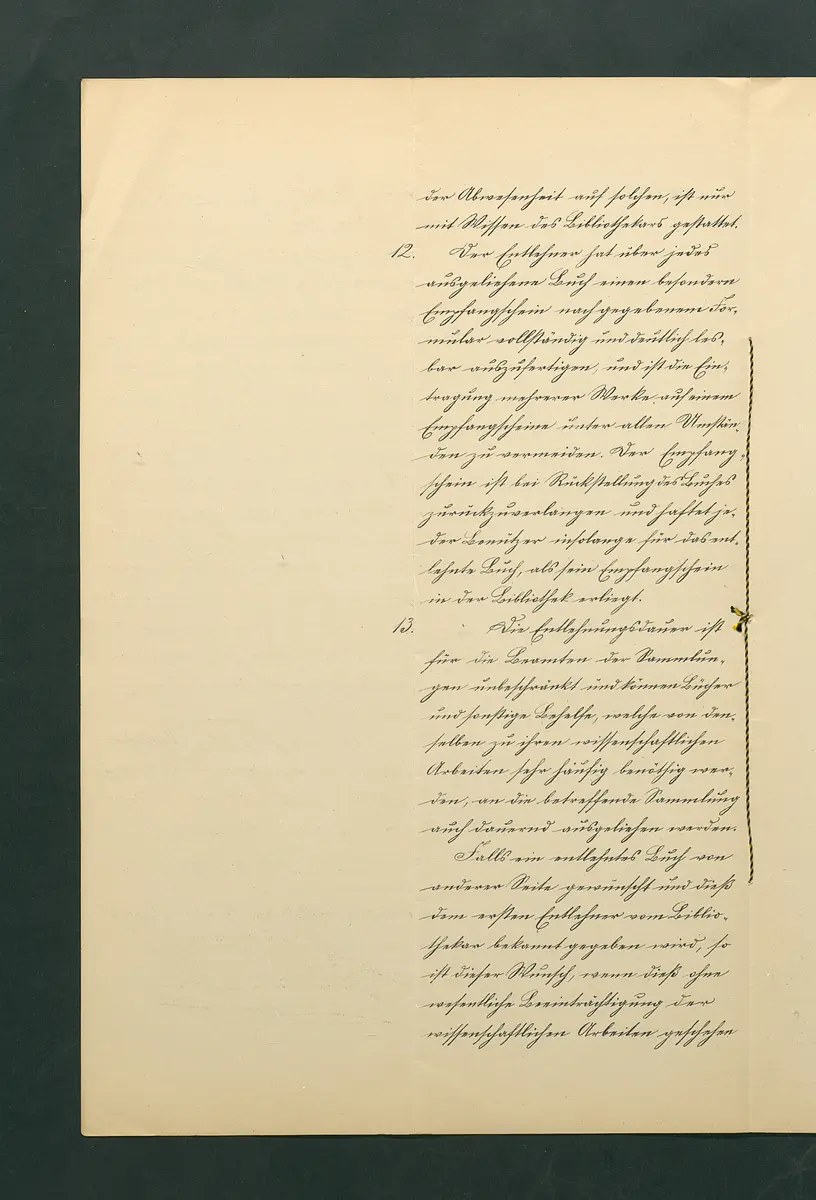 der Abwesenheit auf solchen, ist nur
mit Wissen des Bibliothekars gestattet.
12. Der Entlehner hat über jedes
ausgeliehene Buch einen besondern
Empfangschein nach gegebenem For-
mular vollständig und deutlich les-
bar auszufertigen, und ist die Ein-
tragung mehrerer Werke auf einem
Empfangscheine unter allen Umstän-
den zu vermeiden. Der Empfang-
schein ist bei Rückstellung des Buches
zurückzuverlangen und haftet je-
der Benützer insolange für das ent-
lehnte Buch, als sein Empfangschein
in der Bibliothek erliegt.
13. Die Entlehnungsdauer ist
für die Beamten der Sammlun-
gen unbeschränkt und können Bücher
und sonstige Behelfe, welche von den-
selben zu ihren wissenschaftlichen
Arbeiten sehr häufig benöthig wer-
den, an die betreffende Sammlung
auch dauernd ausgeliehen werden.
Falls ein entlehntes Buch von
anderer Seite gewünscht und dieß
dem ersten Entlehner vom Biblio-
thekar bekannt gegeben wird, so
ist dieser Wunsch, wenn dieß ohne
wesentliche Beeinträchtigung der
wissenschaftlichen Arbeiten geschehen